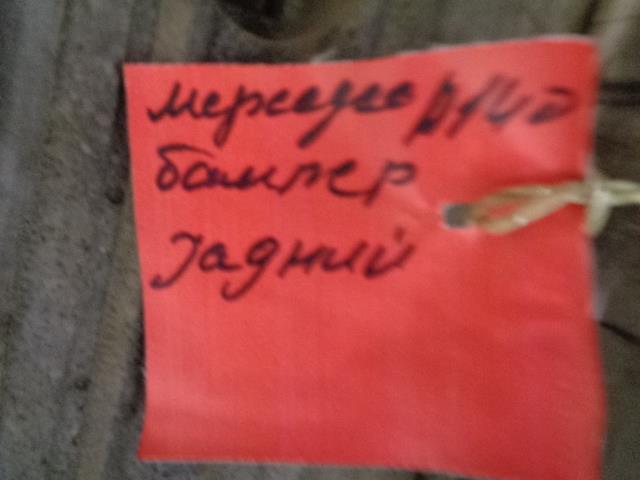 мерседес
бампер
задний